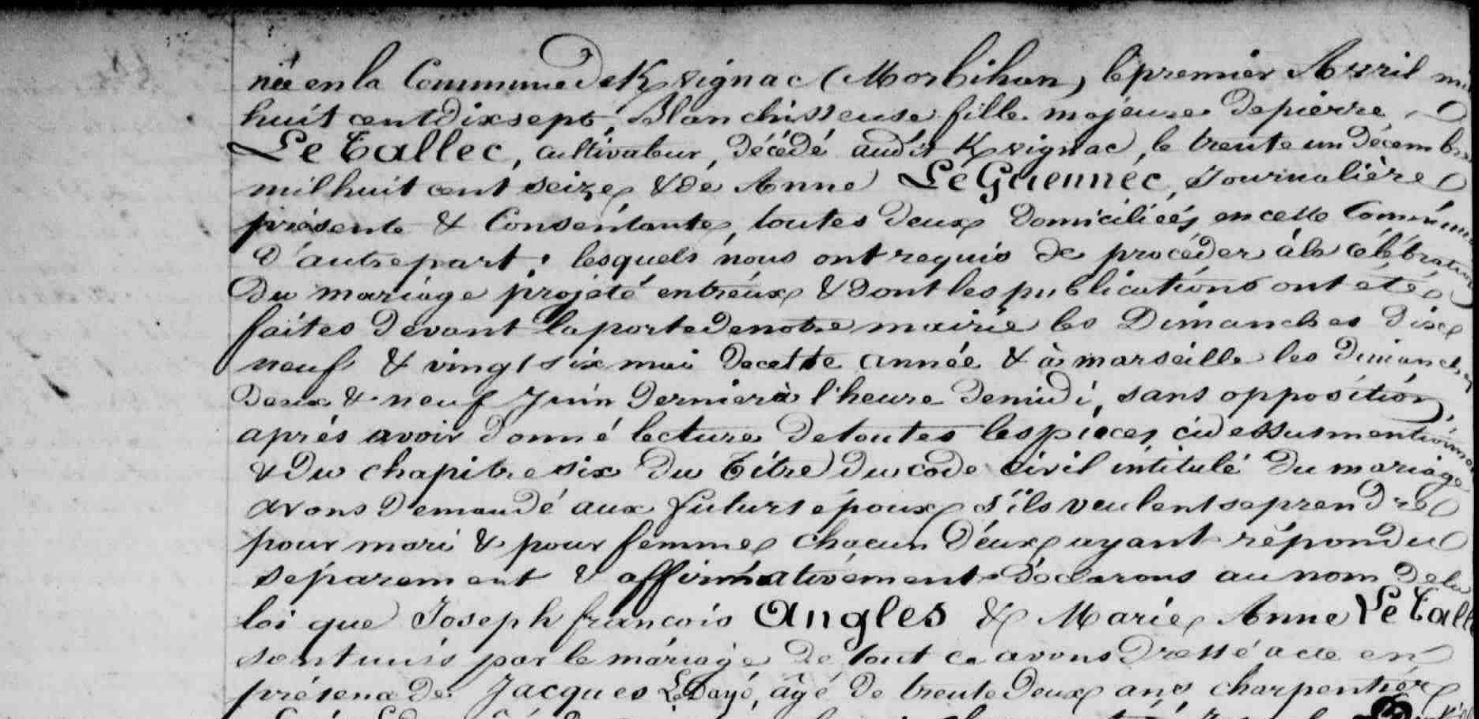 née en la Commune de Kvignac (Morbihan) le premier Avril mil
huit cent dix sept, Blanchisseuse fille majeure de pierre
Le Tallec, cultivateur, décédé audit Kvignac, le trente un décembre
mil huit cent seize & de Anne Le Guennec, Journalière
présente & Consentante, toutes deux domiciliées en cette Commune
d'autre part; lesquels nous ont requis de procéder à la célébration
du mariage projeté entr'eux & dont les publications ont étés
faites devant la porte de notre mairie les Dimanches dix
neuf & vingt six mai de cette année & à marseille les dimanches
deux & neuf Juin dernier à l'heure de midi, sans opposition,
après avoir donné lecture de toutes les pièces ci dessus mentionnées
& du chapitre six du Titre du code civil intitulé du mariage
avons demandé aux futurs époux s'ils veulent se prendre
pour mari & pour femme chacun d'eux ayant répondu
séparement & affirmativement déclarons au nom de la
loi que Joseph françois Angles & Marie Anne Le Tall
sont unis par le mariage de tout ce avons dressé acte en
présence de Jacques Le Dayé, âgé de trente deux ans charpentier